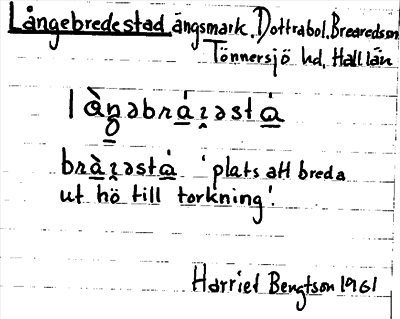 Långebredestad ängsmark. Dottrabol. Breareds sn
Tönnersjö hd, Hall län
brà̱ɀəstá̱ 'plats att breda
ut hö till torkning'.
Harriet Bengtson 1961